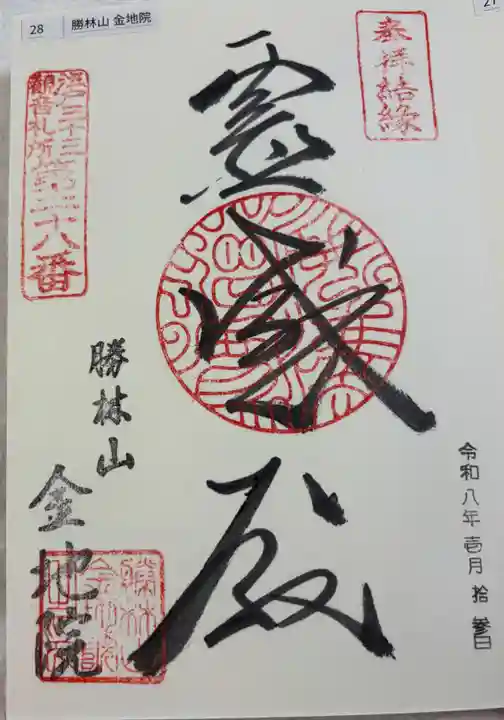 28
勝林山 金地院
27
奉拝結縁
霊感殿
江戸三十三
観音札所
第二十八番
勝林山
金地院
令和八年壱月拾参日